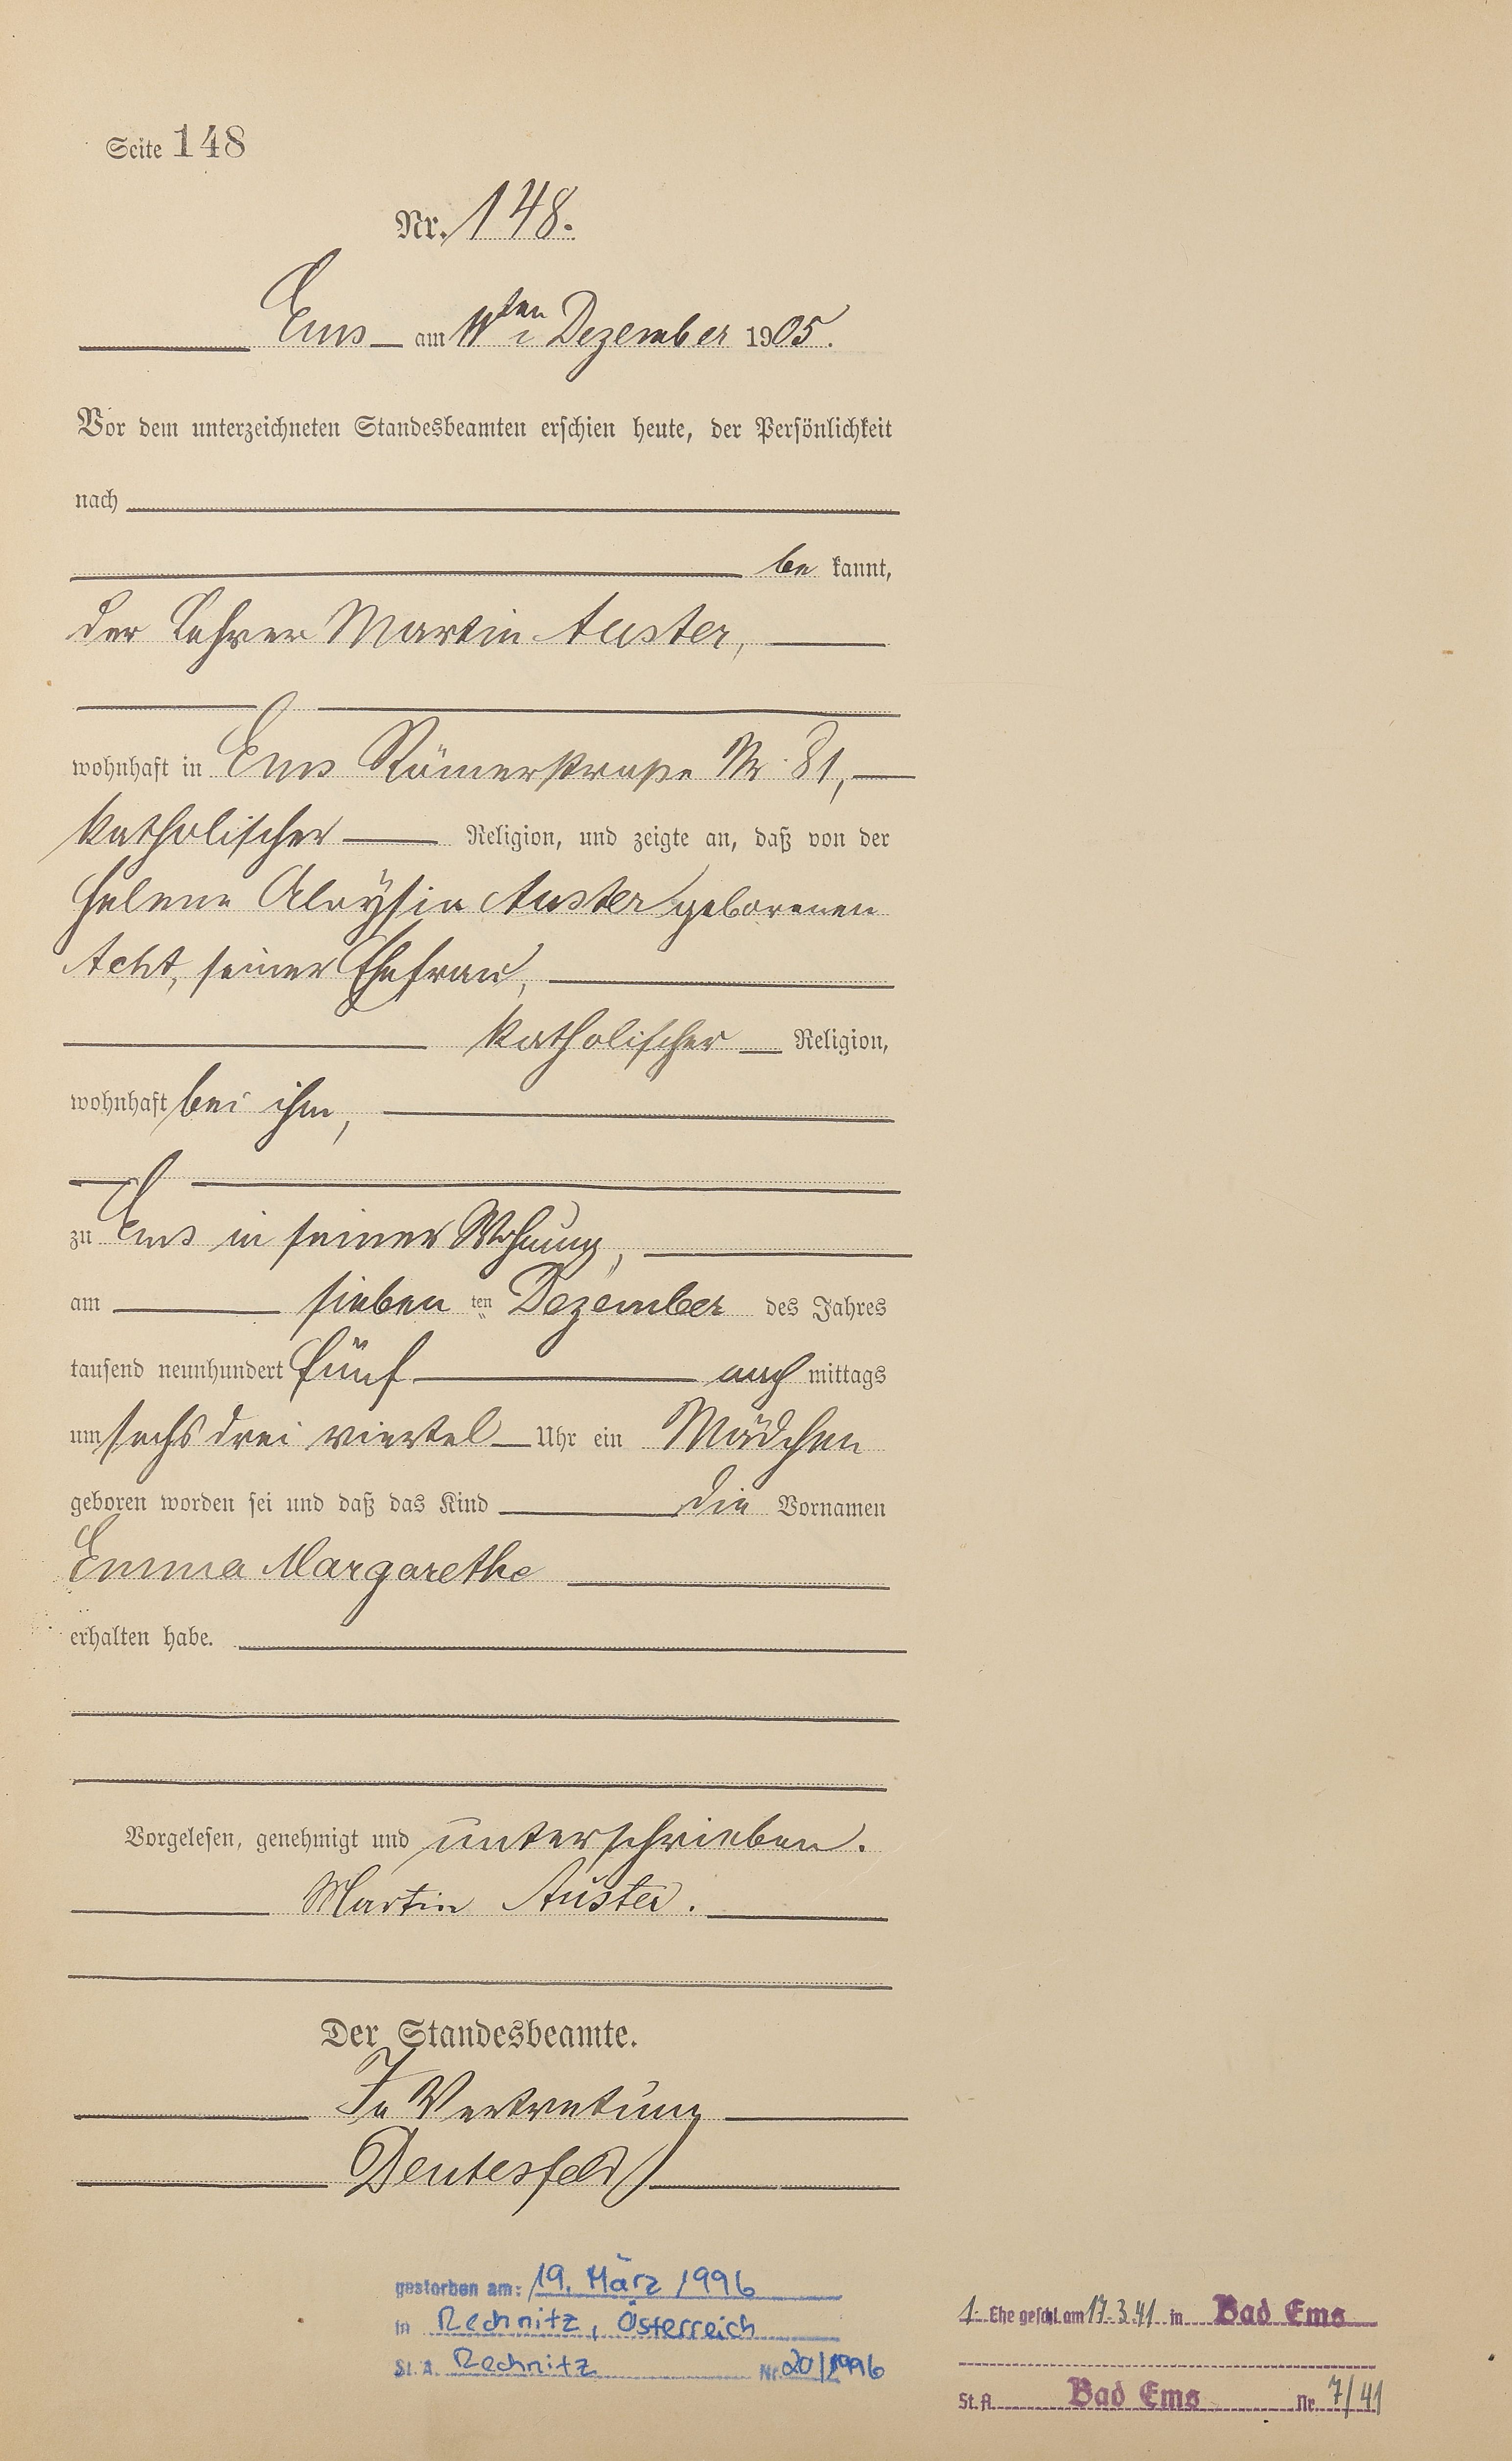 Seite 148
Nr. 148.
Ems am 11ten Dezember 1905.
Vor dem unterzeichneten Standesbeamten erschien heute, der Persönlichkeit
nach
be kannt,
der Lehrer Martin Auster,
wohnhaft in Ems Römerstraße Nr. 81,
katholischer Religion, und zeigte an, daß von der
Helene Aloysia Auster geborenen
Acht, seiner Ehefrau,
katholischer Religion,
wohnhaft bei ihm,
zu Ems in seiner Wohnung,
am sieben ten Dezember des Jahres
tausend neunhundert fünf nach mittags
um sechs drei viertel Uhr ein Mädchen
geboren worden sei und daß das Kind die Vornamen
Emma Margarethe
erhalten habe.
Vorgelesen, genehmigt und unterschrieben.
Martin Auster.
Der Standesbeamte.
In Vertretung
Deutesfeld
gestorben am: 19. März 1996
in Rechnitz, Österreich
St. A. Rechnitz Nr. 20/1996
1. Ehe geschl. am 17.3.41 in Bad Ems
St. A. Bad Ems Nr. 7/41